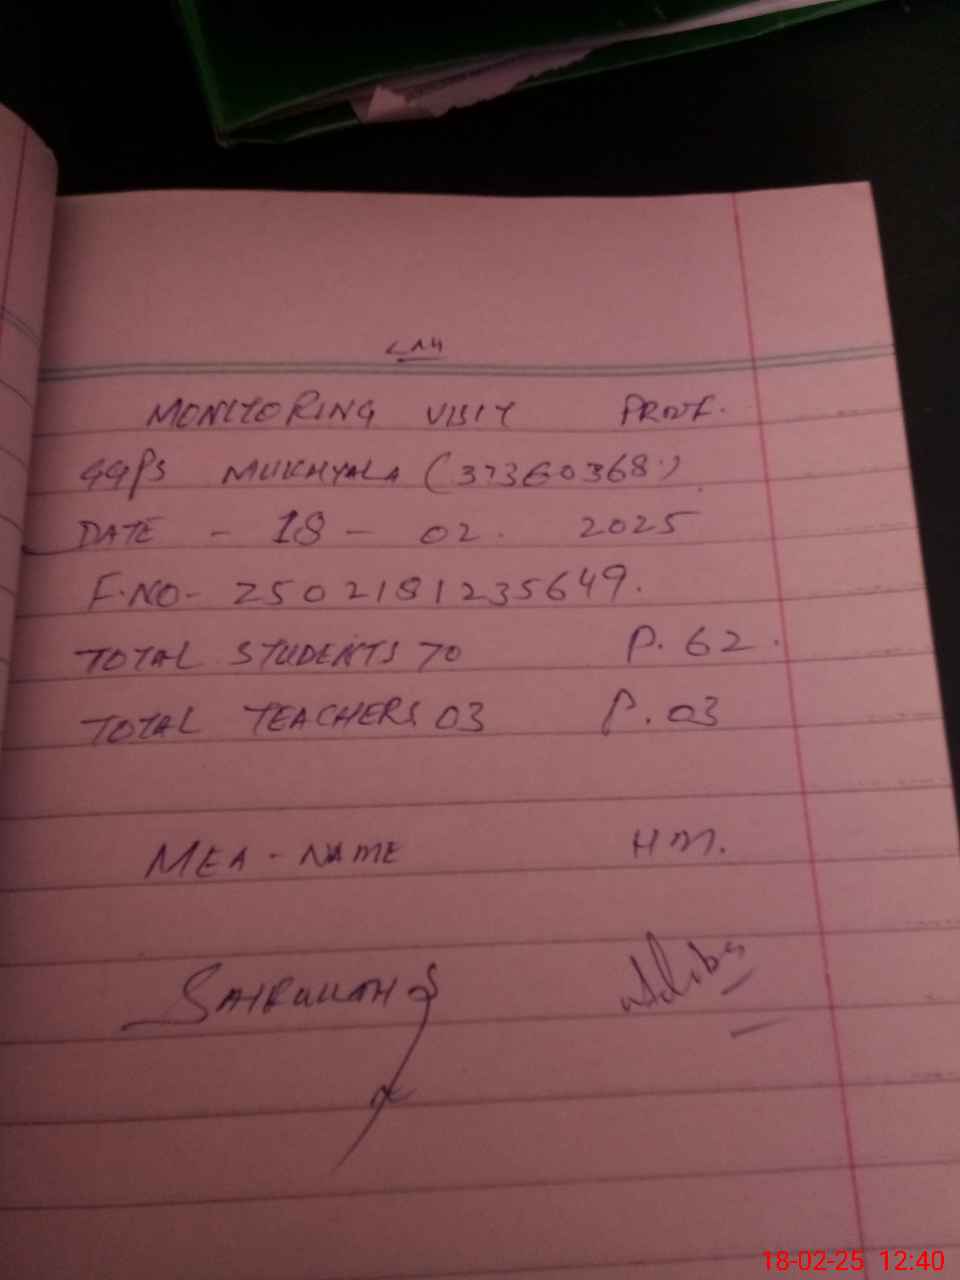 MONITORING VISIT PROOF.
GGPS MUKHYALA (37360368)
DATE - 18 - 02. 2025
F.NO- 2502181235649.
TOTAL STUDENTS 70 P. 62.
TOTAL TEACHERS 03 P. 03
MEA - NAME HM.
18-02-25 12:40